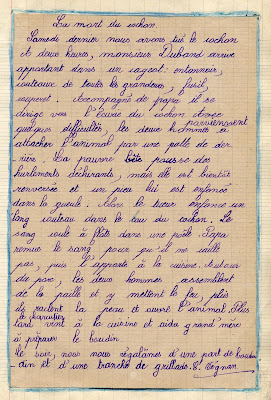 La mort du cochon.
Samedi dernier nous avons tué le cochon
A deux heures, monsieur Duband arrive
apportant dans un cageot: entonnoir,
couteaux de toute les grandeurs, fusil,
Accompagné de papa il se
dirige vers l'écurie du cochon. Avec
quelques difficultés, les deux hommes parviennent à
attacher l'animal par une patte de der-
rière. La pauvre bête pousse des
hurlements déchirants, mais elle est bientôt
renversée et un pieu lui est enfoncé
dans la gueule. Alors le tueur enfonce un
long couteau dans le cou du cochon. Le
sang coule à flots dans une poële. Papa
remue le sang pour qu'il ne caille
pas, puis l'apporte à la cuisine. Autour
du porc, les deux hommes assemblent
de la paille et y mettent le feu, puis
ils raclent la peau et ouvre l'animal. Plus
tard vient à la cuisine et aida grand'mère
à préparer le boudin.
Le soir nous nous régalâmes d'une part de boudin
din et d'une tranche de grillade.